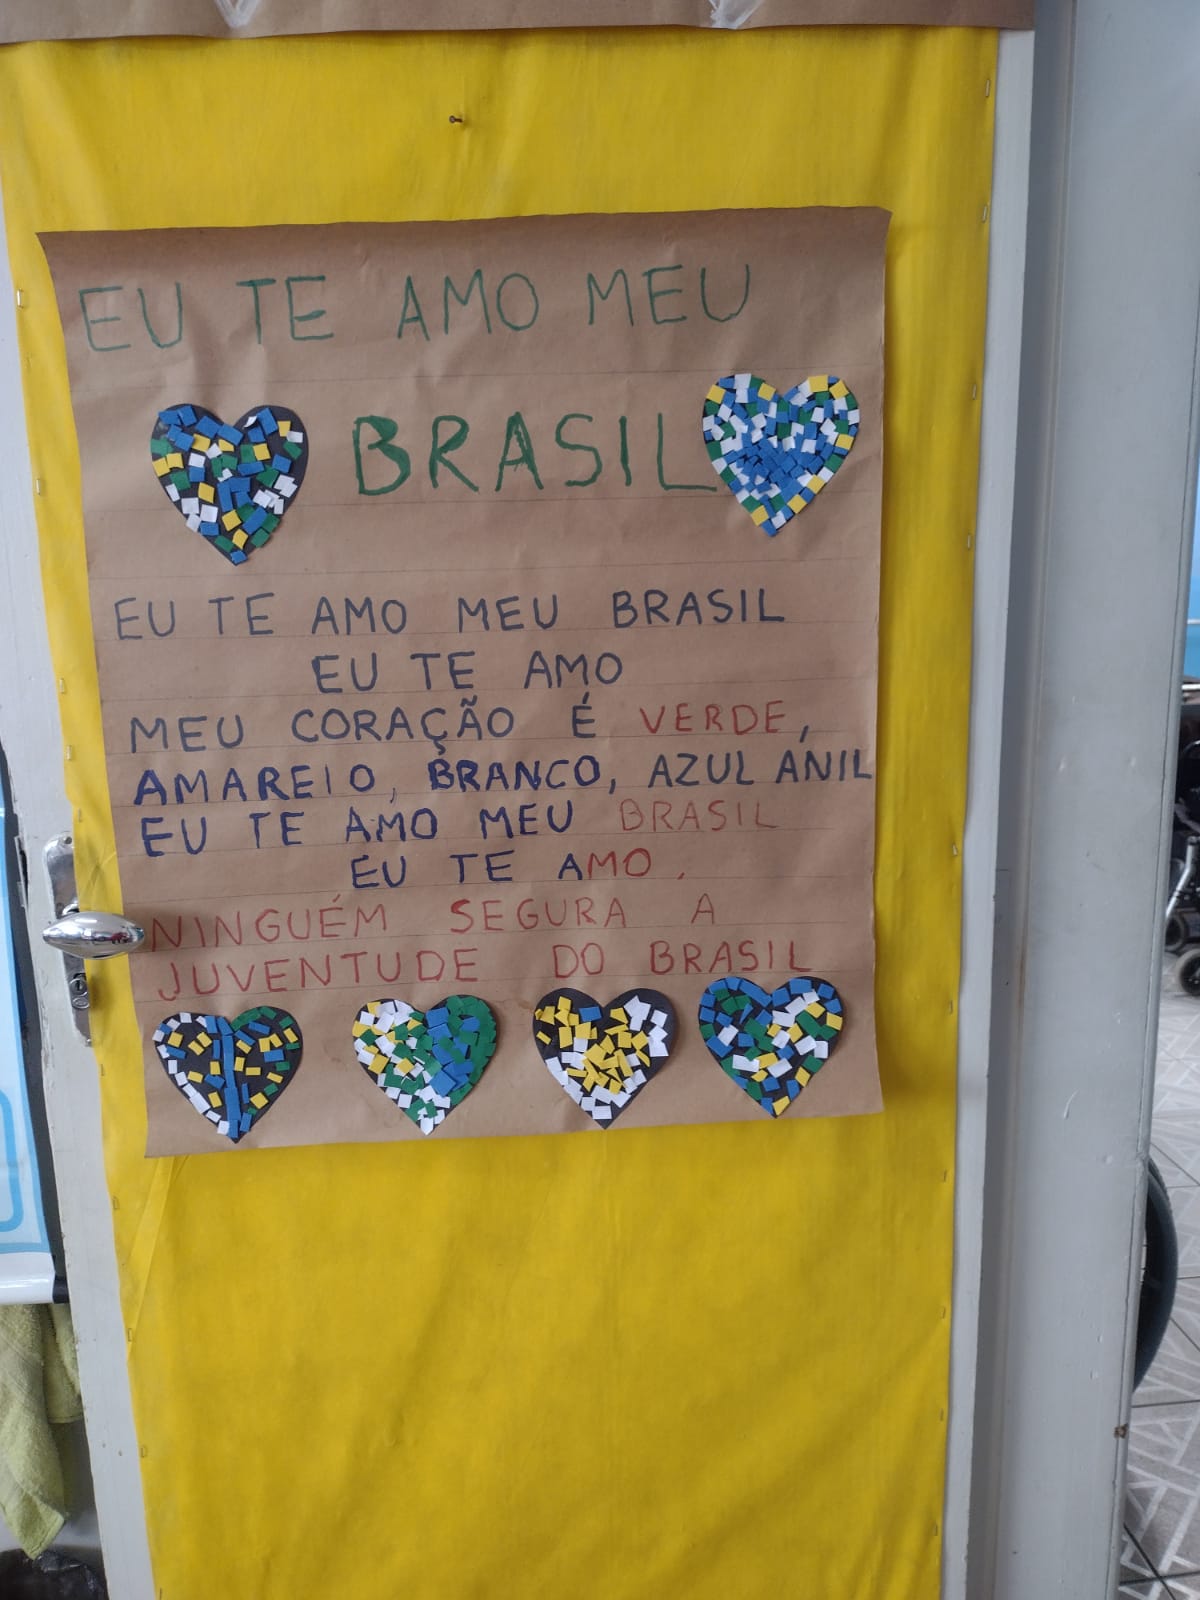 EU TE AMO MEU
BRASIL
EU TE AMO MEU BRASIL
EU TE AMO
MEU CORAÇÃO É VERDE,
AMAREIO, BRANCO, AZUL ANIL
EU TE AMO MEU BRASIL
EU TE AMO.
NINGUÉM SEGURA A
JUVENTUDE DO BRASIL